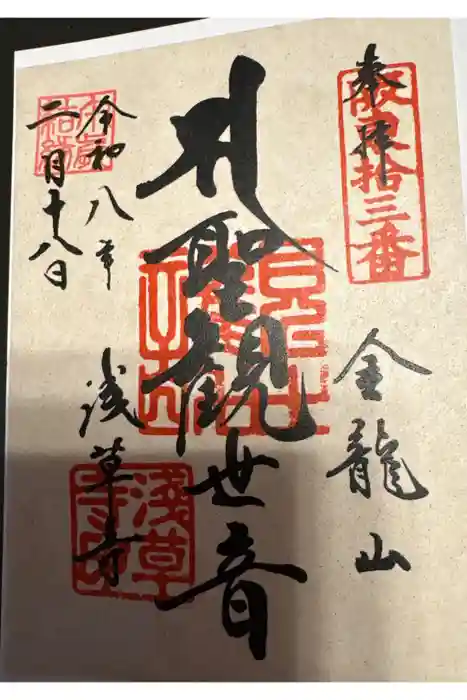 奉拝
坂東拾三番
金龍山
聖観世音
浅草寺
令和八年
二月十八日
浅草寺印